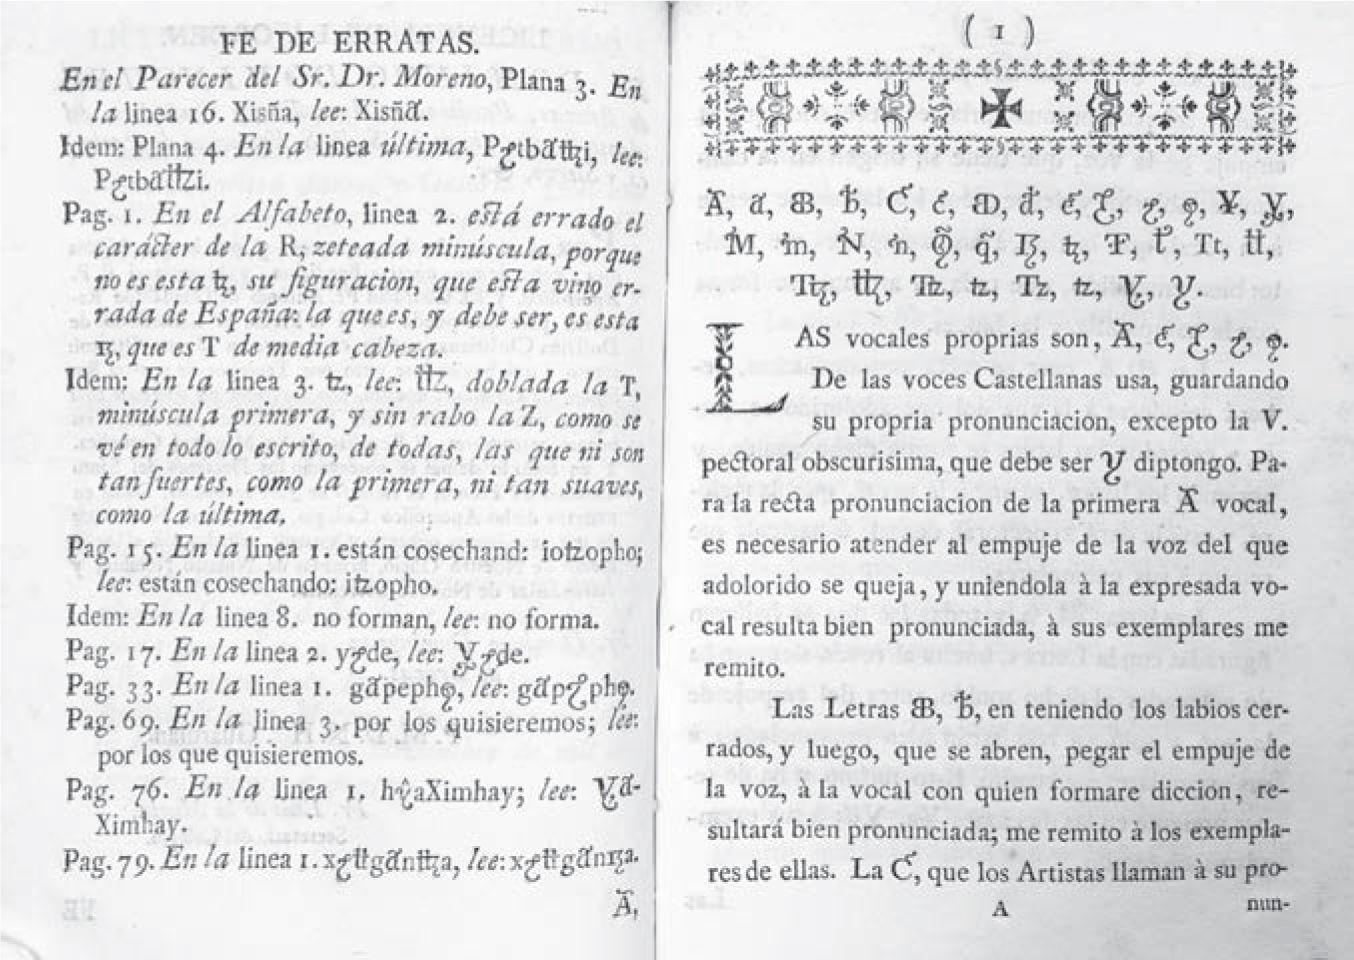 FE DE ERRATAS.
En el Parecer del Sr. Dr. Moreno, Plana 3. En
la linea 16. Xisña, lee: Xisñã.
Idem: Plana 4. En la linea última, lee:
Pag. 1. En el Alfabeto, linea 2. está errado el
carácter de la R, zeteada minúscula, porque
no es esta ꜩ, su figuracion, que esta vino er-
rada de España: la que es, y debe ser, es esta
que es T de media cabeza.
Idem: En la linea 3. ꜩ, lee: doblada la T,
minúscula primera, y sin rabo la Z, como se
vé en todo lo escrito, de todas, las que ni son
tan fuertes, como la primera, ni tan suaves,
como la última.
Pag. 15. En la linea 1. están cosechand: ioꜩopho;
lee: están cosechando: iꜩopho.
Idem: En la linea 8. no forman, lee: no forma.
Pag. 17. En la linea 2. lee:
Pag. 33. En la linea 1. lee:
Pag. 69. En la linea 3. por los quisieremos; lee:
por los que quisieremos.
Pag. 76. En la linea 1. lee:
Ximhay.
Pag. 79. En la linea 1. lee:
Ã,
( 1 )
AS vocales proprias son,
De las voces Castellanas usa, guardando
su propria pronunciacion, excepto la V.
pectoral obscurisima, que debe ser diptongo. Pa-
ra la recta pronunciacion de la primera Ã vocal,
es necesario atender al empuje de la voz del que
adolorido se queja, y uniendola à la expresada vo-
cal resulta bien pronunciada, à sus exemplares me
remito.
Las Letras en teniendo los labios cer-
rados, y luego, que se abren, pegar el empuje de
la voz, à la vocal con quien formare diccion, re-
sultará bien pronunciada; me remito à los exempla-
res de ellas. La que los Artistas llaman à su pro-
A nun-